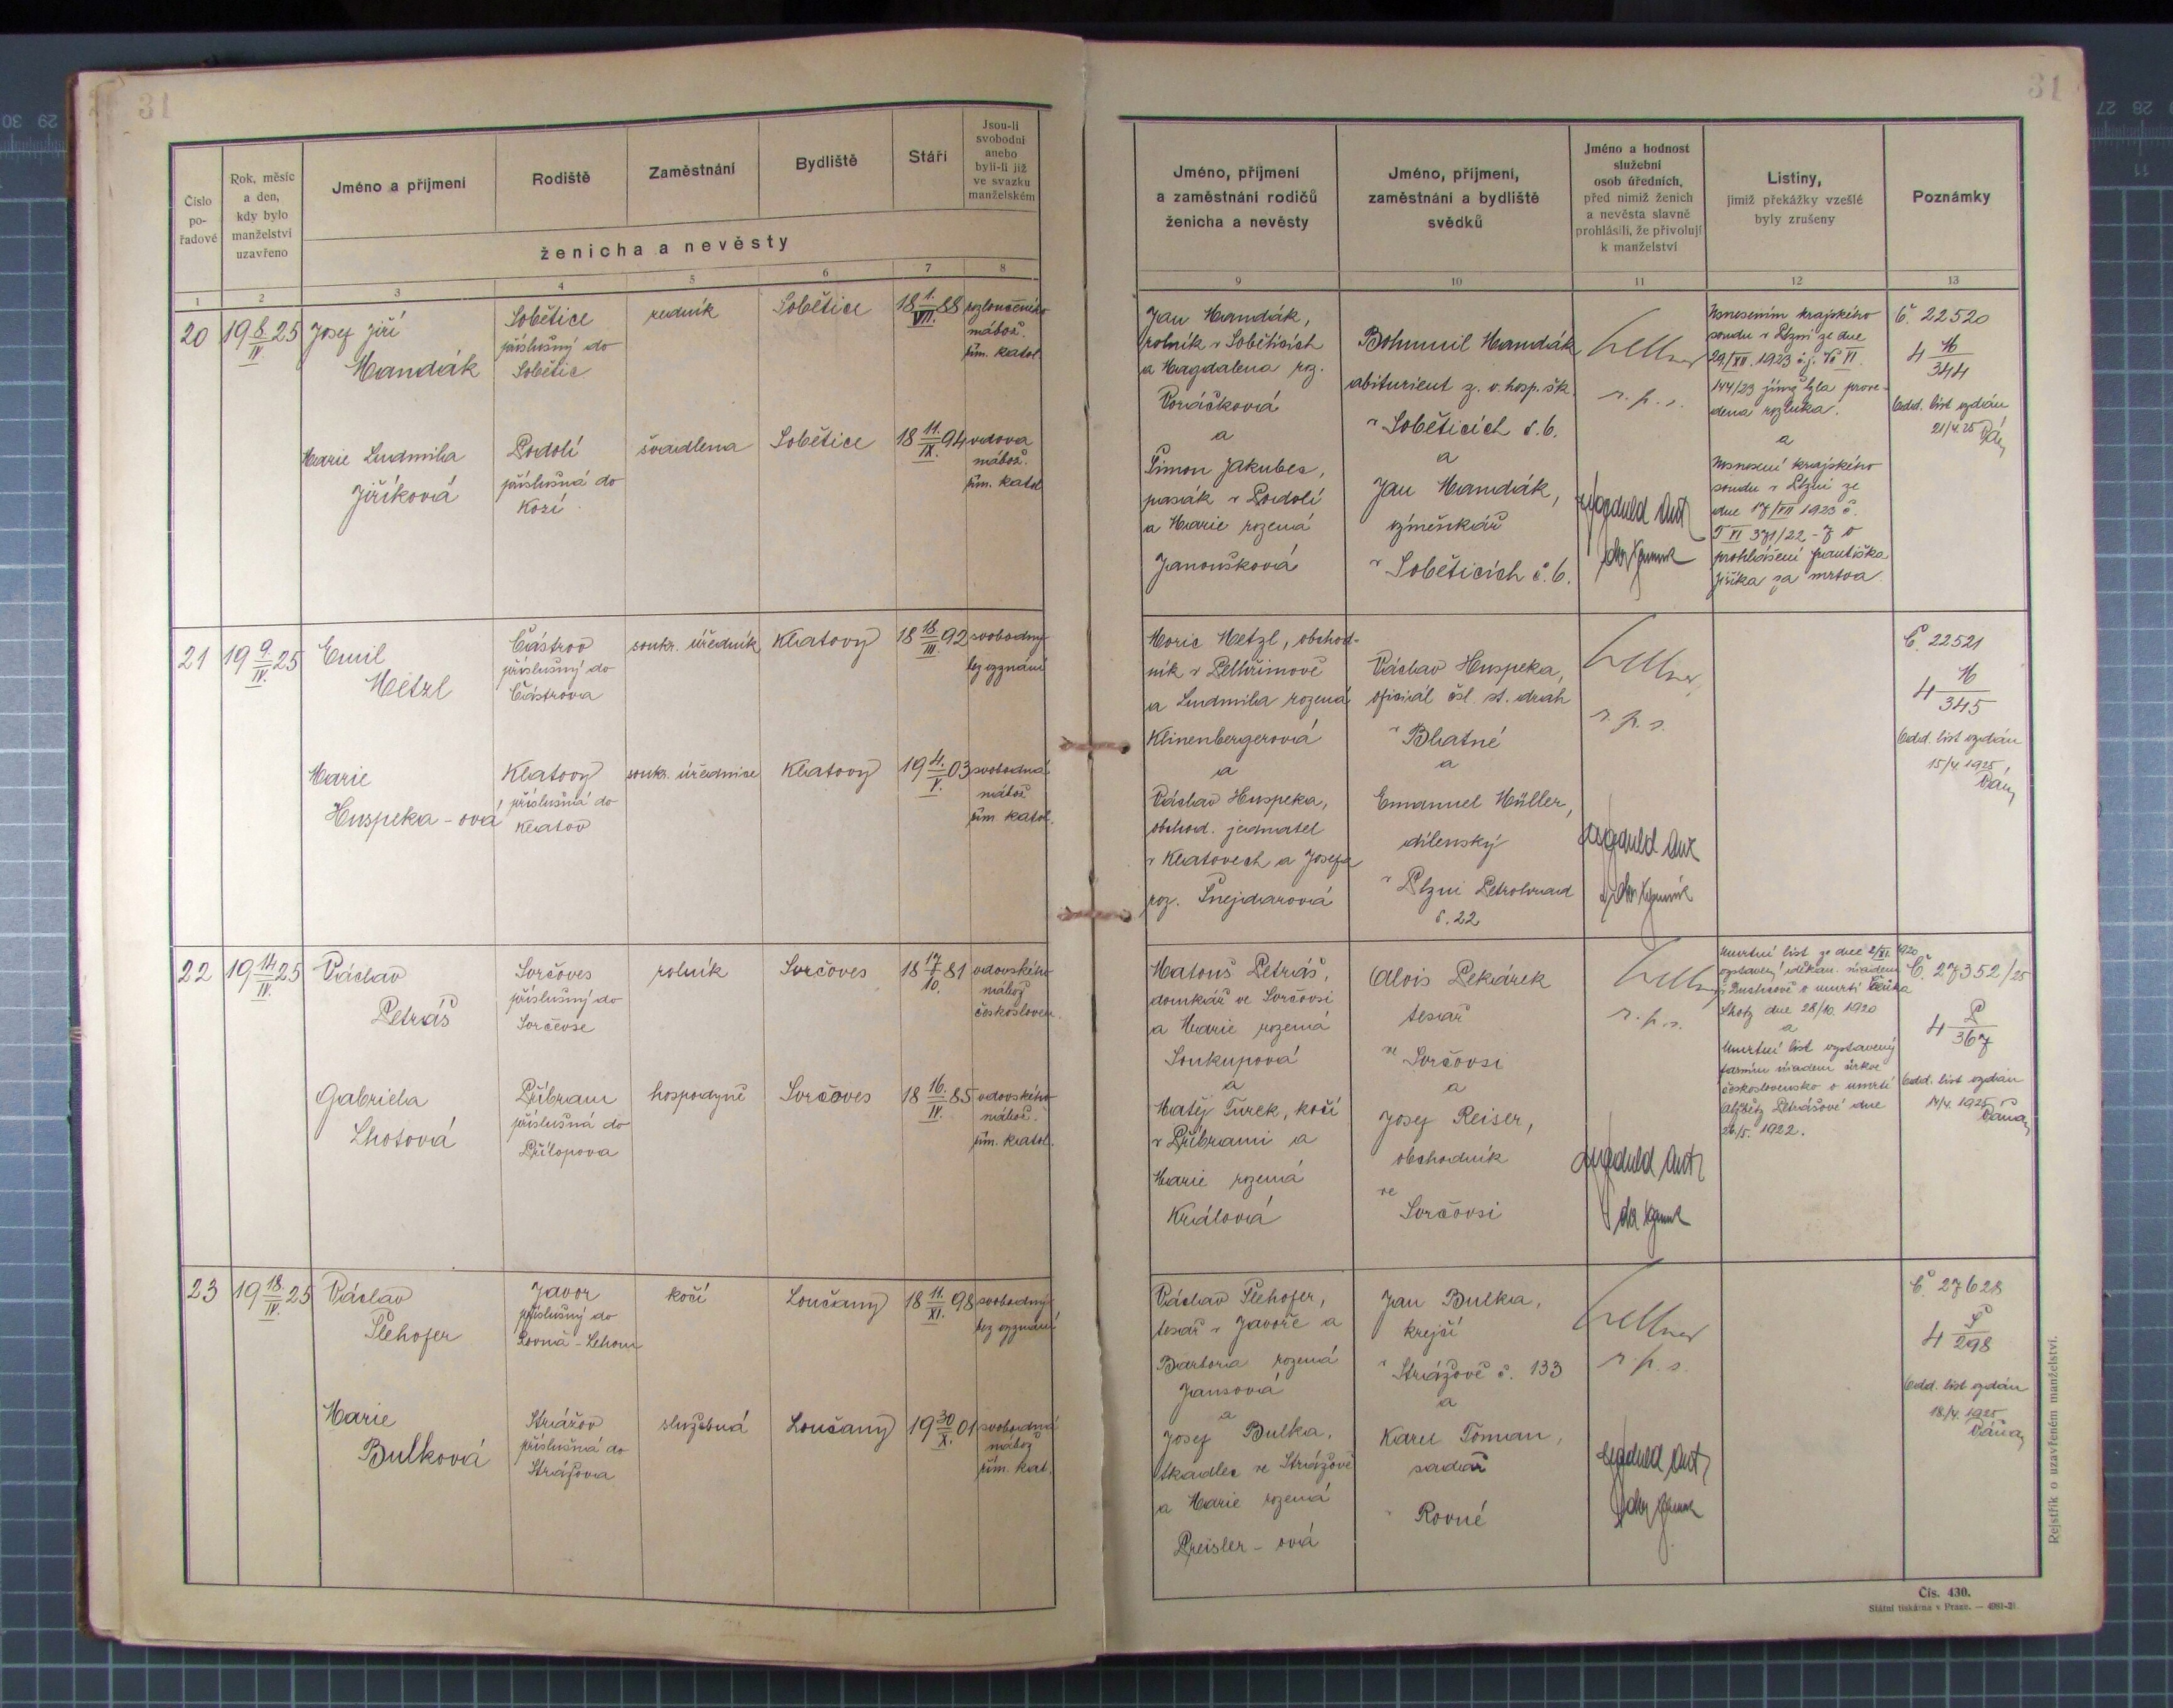 31
Číslo po-řadové
Rok, měsíc a den, kdy bylo manželství uzavřeno
Jméno a příjmení
Rodiště
Zaměstnání
Bydliště
Stáří
Jsou-li svobodni anebo byli-li již ve svazku manželském
ženicha a nevěsty
1 2 3 4 5 6 7 8
20
19 8./IV. 25
Josef Jiří
Mandák
Sobětice
příslušný do
Sobětic
Sobětice
18 1./VII. 88
nábož.
řím. katol.
Marie Ludmila
Jiříková
Podolí
příslušná do
Kozí
švadlena
Sobětice
18 11./IX. 94
vdova
nábož.
řím. katol.
21
19 9./IV. 25
Emil
Metzl
Částrov
příslušný do
Částrova
soukr. úředník
Klatovy
18 18./III. 92
svobodný
bez vyznání
Marie
Huspeka-ová
Klatovy
příslušná do
Klatov
soukr. úřednice
Klatovy
19 4./V. 03
svobodná
nábož.
řím. katol.
22
19 14./IV. 25
Václav
Petráš
Svrčoves
příslušný do
Svrčevse
rolník
Svrčoves
18 81
10.
vdovského
nábož.
českosloven.
Gabriela
Lhotová
Příbram
příslušná do
Přítopova
hospodyně
Svrčoves
18 16./IV. 85
vdovského
nábož.
řím. katol.
23
19 18./IV. 25
Václav
Plehofer
Javor
příslušný do
Rovná - Lehom
kočí
Loučany
18 11./XI. 98
svobodný
bez vyznání
Marie
Bulková
Strážov
příslušná do
Strážova
služebná
Loučany
19 30/X. 01
svobodná
nábož.
řím. kat.
31
Jméno, příjmení
a zaměstnání rodičů
ženicha a nevěsty
Jméno, příjmení,
zaměstnání a bydliště
svědků
Jméno a hodnost
služební
osob úředních,
před nimiž ženich
a nevěsta slavně
prohlásili, že přivolují
k manželství
Listiny,
jimiž překážky vzešlé
byly zrušeny
Poznámky
9 10 11 12 13
Jan Mandák,
rolník v Soběticích
a Magdalena roz.
Voráčková
a
Šimon Jakubec,
pasák v Podolí
a Marie rozená
Janoušková
Bohumil Mandák
abiturient z. v. hosp. šk.
v Soběticích č. 6.
a
Jan Mandák,
výměnkář
v Soběticích č. 6.
r. p. s.
Usnesením krajského
soudu v Plzni ze dne
29/XII. 1923 č. j.
144/23 jímž byla prove-
dena rozluka.
a
Usnesení krajského
soudu v Plzni ze
dne 17/VII 1923 č.
T VI 371/22-7 o
prohlášení Františka
Jiříka za mrtva.
Č. 22520
4 M/344
Odd. list vydán
21/4. 25
Moric Metzl, obchod-
ník v Pelhřimově
a Ludmila rozená
Klinenbergerová
a
Václav Huspeka,
obchod. jednatel
v Klatovech a Josefa
roz. Šnejdarová
Václav Huspeka,
oficiál čsl. st. drah
v Blatné
a
Emanuel Müller,
dílenský
v Plzni Petrohrad
č. 22
r. p. s.
Č. 22521
4 M/345
Odd. list vydán
15/4. 1925
Matouš Petráš,
domkář ve Svrčovsi
a Marie rozená
Soukupová
a
Matěj Turek, kočí
v Příbrami a
Marie rozená
Králová
Alois Pekárek
tesař
ve Svrčovsi
a
Josef Reiser,
obchodník
ve
Svrčovsi
r. p. s.
Úmrtní list ze dne 2/XI. 1920
vystavený děkan. úřadem
v Duchcově o úmrtí
Lhoty dne 28/10. 1920
a
Úmrtní list vystavený
farním úřadem církve
československé o úmrtí
Alžběty Petrášové dne
26/5. 1922.
Č. 27352/25
4 P/367
Odd. list vydán
14/4. 1925
Václav Plehofer,
tesař v Javoře a
Barbora rozená
Jansová
a
Josef Bulka,
tkadlec ve Strážově
a Marie rozená
Preisler-ová
Jan Bulka,
krejčí
v Strážově č. 133
a
Karel Toman,
sadař
v Rovné
r. p. s.
Č. 27628
4 P/298
Odd. list vydán
18/4. 1925
Rejstřík o uzavřeném manželství.
Čís. 430.
Státní tiskárna v Praze.